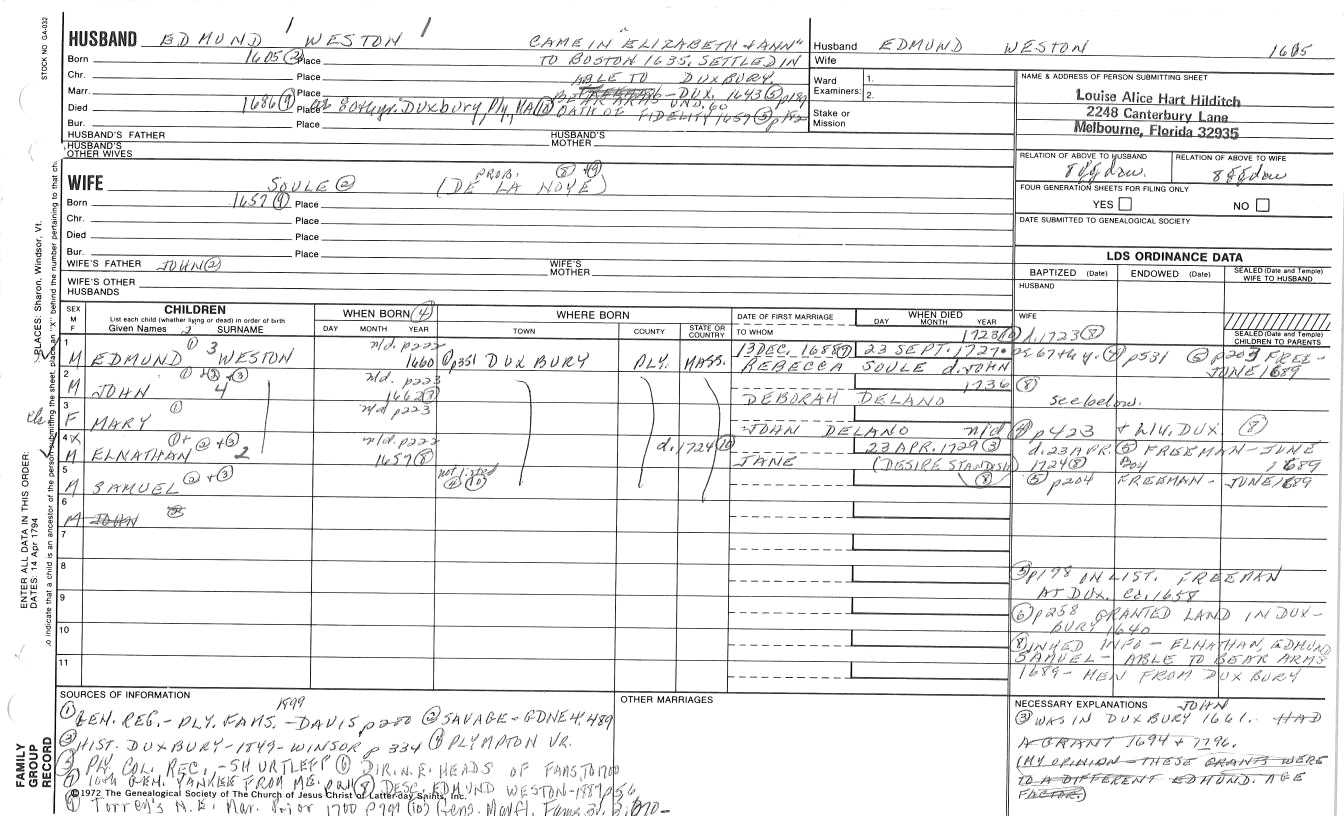 STOCK NO. GA-032
HUSBAND EDMUND WESTON
Born 1605 ③ Place
Chr. Place
Marr. Place
Died 1686 ⑨ Place Duxbury, Ply, MA ⑩
Bur. Place
CAME IN "ELIZABETH & ANN"
TO BOSTON 1635, SETTLED IN
DUXBURY,
ABLE TO
BEAR ARMS - DUX. 1643 ⑤
UND. 60
OATH OF FIDELITY 1657 ⑤
HUSBAND'S FATHER
HUSBAND'S MOTHER
HUSBAND'S OTHER WIVES
Husband EDMUND WESTON 1605
Wife
Ward 1.
Examiners: 2.
Stake or
Mission
NAME & ADDRESS OF PERSON SUBMITTING SHEET
Louise Alice Hart Hilditch
2248 Canterbury Lane
Melbourne, Florida 32935
RELATION OF ABOVE TO HUSBAND
RELATION OF ABOVE TO WIFE
FOUR GENERATION SHEETS FOR FILING ONLY
YES NO
DATE SUBMITTED TO GENEALOGICAL SOCIETY
WIFE SOULE ② PROB. ⑧ + ⑨
(DE LA NOYE)
Born 1657 ⑨ Place
Chr. Place
Died Place
Bur. Place
WIFE'S FATHER JOHN ②
WIFE'S MOTHER
WIFE'S OTHER HUSBANDS
LDS ORDINANCE DATA
BAPTIZED (Date) ENDOWED (Date) SEALED (Date and Temple) WIFE TO HUSBAND
HUSBAND
WIFE
SEALED (Date and Temple) CHILDREN TO PARENTS
SEX
M
F
CHILDREN
List each child (whether living or dead) in order of birth
Given Names SURNAME
WHEN BORN ④
DAY MONTH YEAR
WHERE BORN
TOWN COUNTY STATE OR COUNTRY
DATE OF FIRST MARRIAGE
TO WHOM
WHEN DIED
DAY MONTH YEAR
1 M EDMUND WESTON ① 3 n/d. p222 1660 p351 DUXBURY PLY. MASS.
13 DEC. 1688 23 SEPT. 1727 1723 d.1723 ⑧
REBECCA SOULE d. JOHN p531 ⑤ p203 FREE-
JUNE 1689
2 M JOHN ① + ② + ③ 4 n/d. p223 1662
DEBORAH DELANO 1736 ⑧ see below.
3 F MARY ① n/d p223
JOHN DELANO n/d ④ p423 + LIV. DUX ⑧
4 X M ELNATHAN ① + ② + ③ 2 n/d. p222 1657 ⑧ d. 1724 ⑩
23 APR. 1729 ③ d. 23 APR. 1724 ⑧ ⑤ FREEMAN - JUNE 1689
JANE (DESIRE STANDISH) ⑧
5 M SAMUEL ② + ③ not listed ④ ⑩
⑤ p204 FREEMAN - JUNE 1689
6 M JOHN
7
8
9
10
11
⑤ p178 ON LIST. FREEMAN
AT DUX. Ca. 1658
⑥ p258 GRANTED LAND IN DUX-
BURY 1640
INFO - ELNATHAN, EDMUND
SAMUEL - ABLE TO BEAR ARMS
1689 - MEN FROM DUXBURY
SOURCES OF INFORMATION
1899
① GEN. REG. - PLY. FAMS. - DAVIS p280 ② SAVAGE - GDNE 4:489
③ HIST. DUXBURY - 1849 - WINSOR p 334 ④ PLYMPTON VR.
⑤ PLY. COL. REC. - SHURTLEFF ⑥ DIR. N.E. HEADS OF FAMS. TO 1700
⑦ 10th GEN. YANKEE FROM ME. ⑧ DESC. EDMUND WESTON - 1887 p56
©1972 The Genealogical Society of The Church of Jesus Christ of Latter-day Saints, Inc.
⑨ Torrey's N.E. Mar. Prior 1700 p799 ⑩ Gens. Mayfl. Fams
OTHER MARRIAGES
NECESSARY EXPLANATIONS
JOHN
③ WAS IN DUXBURY 1661. HAD
A GRANT 1694 + 1796.
(MY OPINION - THESE GRANTS WERE
TO A DIFFERENT EDMUND. AGE
FACTOR.)
FAMILY
GROUP
RECORD
ENTER ALL DATA IN THIS ORDER:
DATES: 14 Apr 1794
PLACES: Sharon, Windsor, Vt.
to indicate that a child is an ancestor of the person submitting the sheet, place an "X" behind the number pertaining to that ch